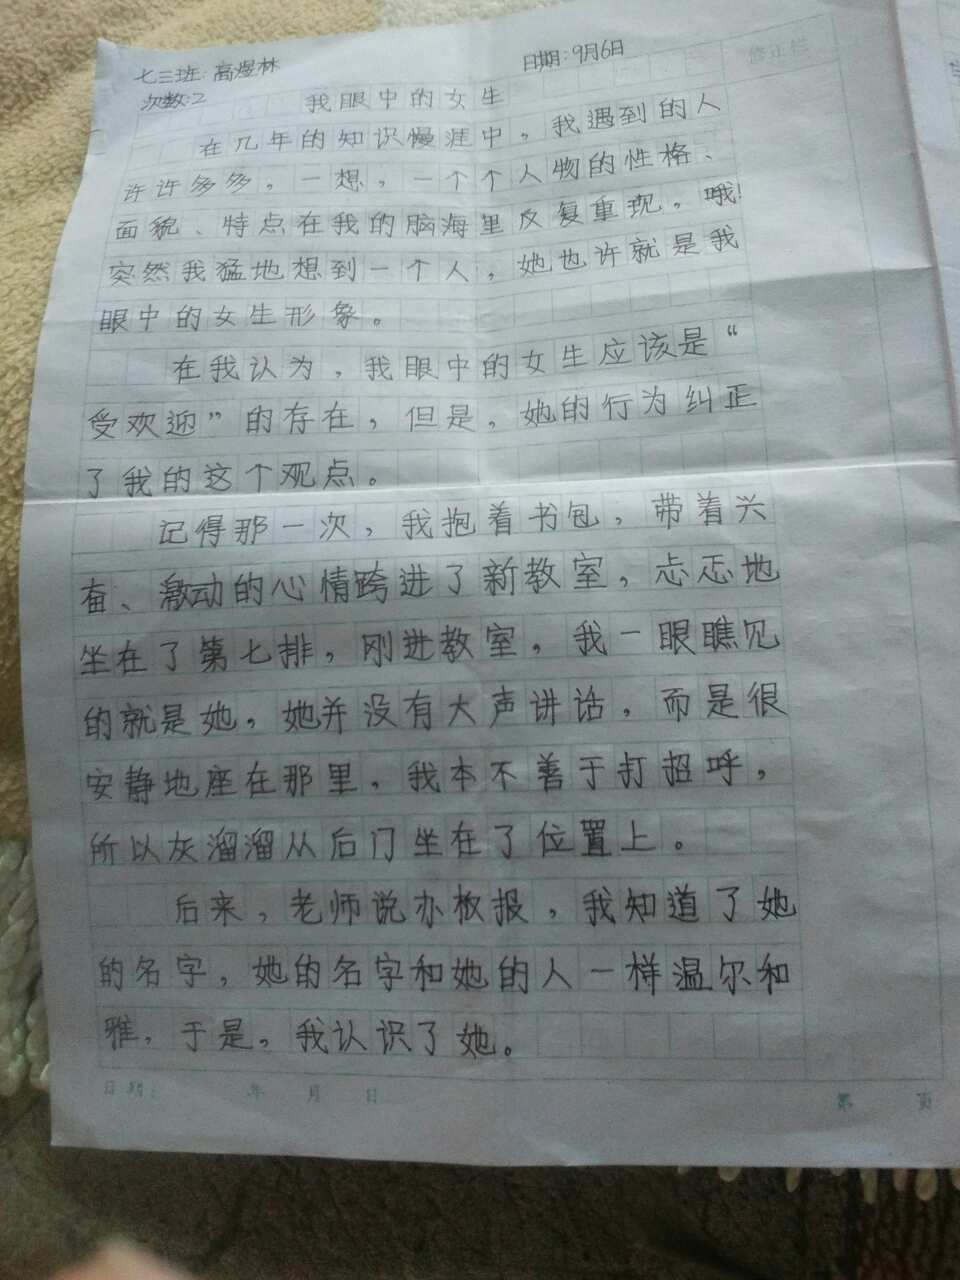 七三班:高煜林 日期:9月6日 修正栏
次数:2 我眼中的女生
在几年的知识慢涯中，我遇到的人
许许多多，一想，一个个人物的性格、
面貌、特点在我的脑海里反复重现。哦!
突然我猛地想到一个人，她也许就是我
眼中的女生形象。
在我认为，我眼中的女生应该是“
受欢迎”的存在，但是，她的行为纠正
了我的这个观点。
记得那一次，我抱着书包，带着兴
奋、激动的心情跨进了新教室，忐忑地
坐在了第七排，刚进教室，我一眼瞧见
的就是她，她并没有大声讲话，而是很
安静地座在那里，我本不善于打招呼，
所以灰溜溜从后门坐在了位置上。
后来，老师说办板报，我知道了她
的名字，她的名字和她的人一样温尔和
雅，于是，我认识了她。
日期: 年 月 日 第 页